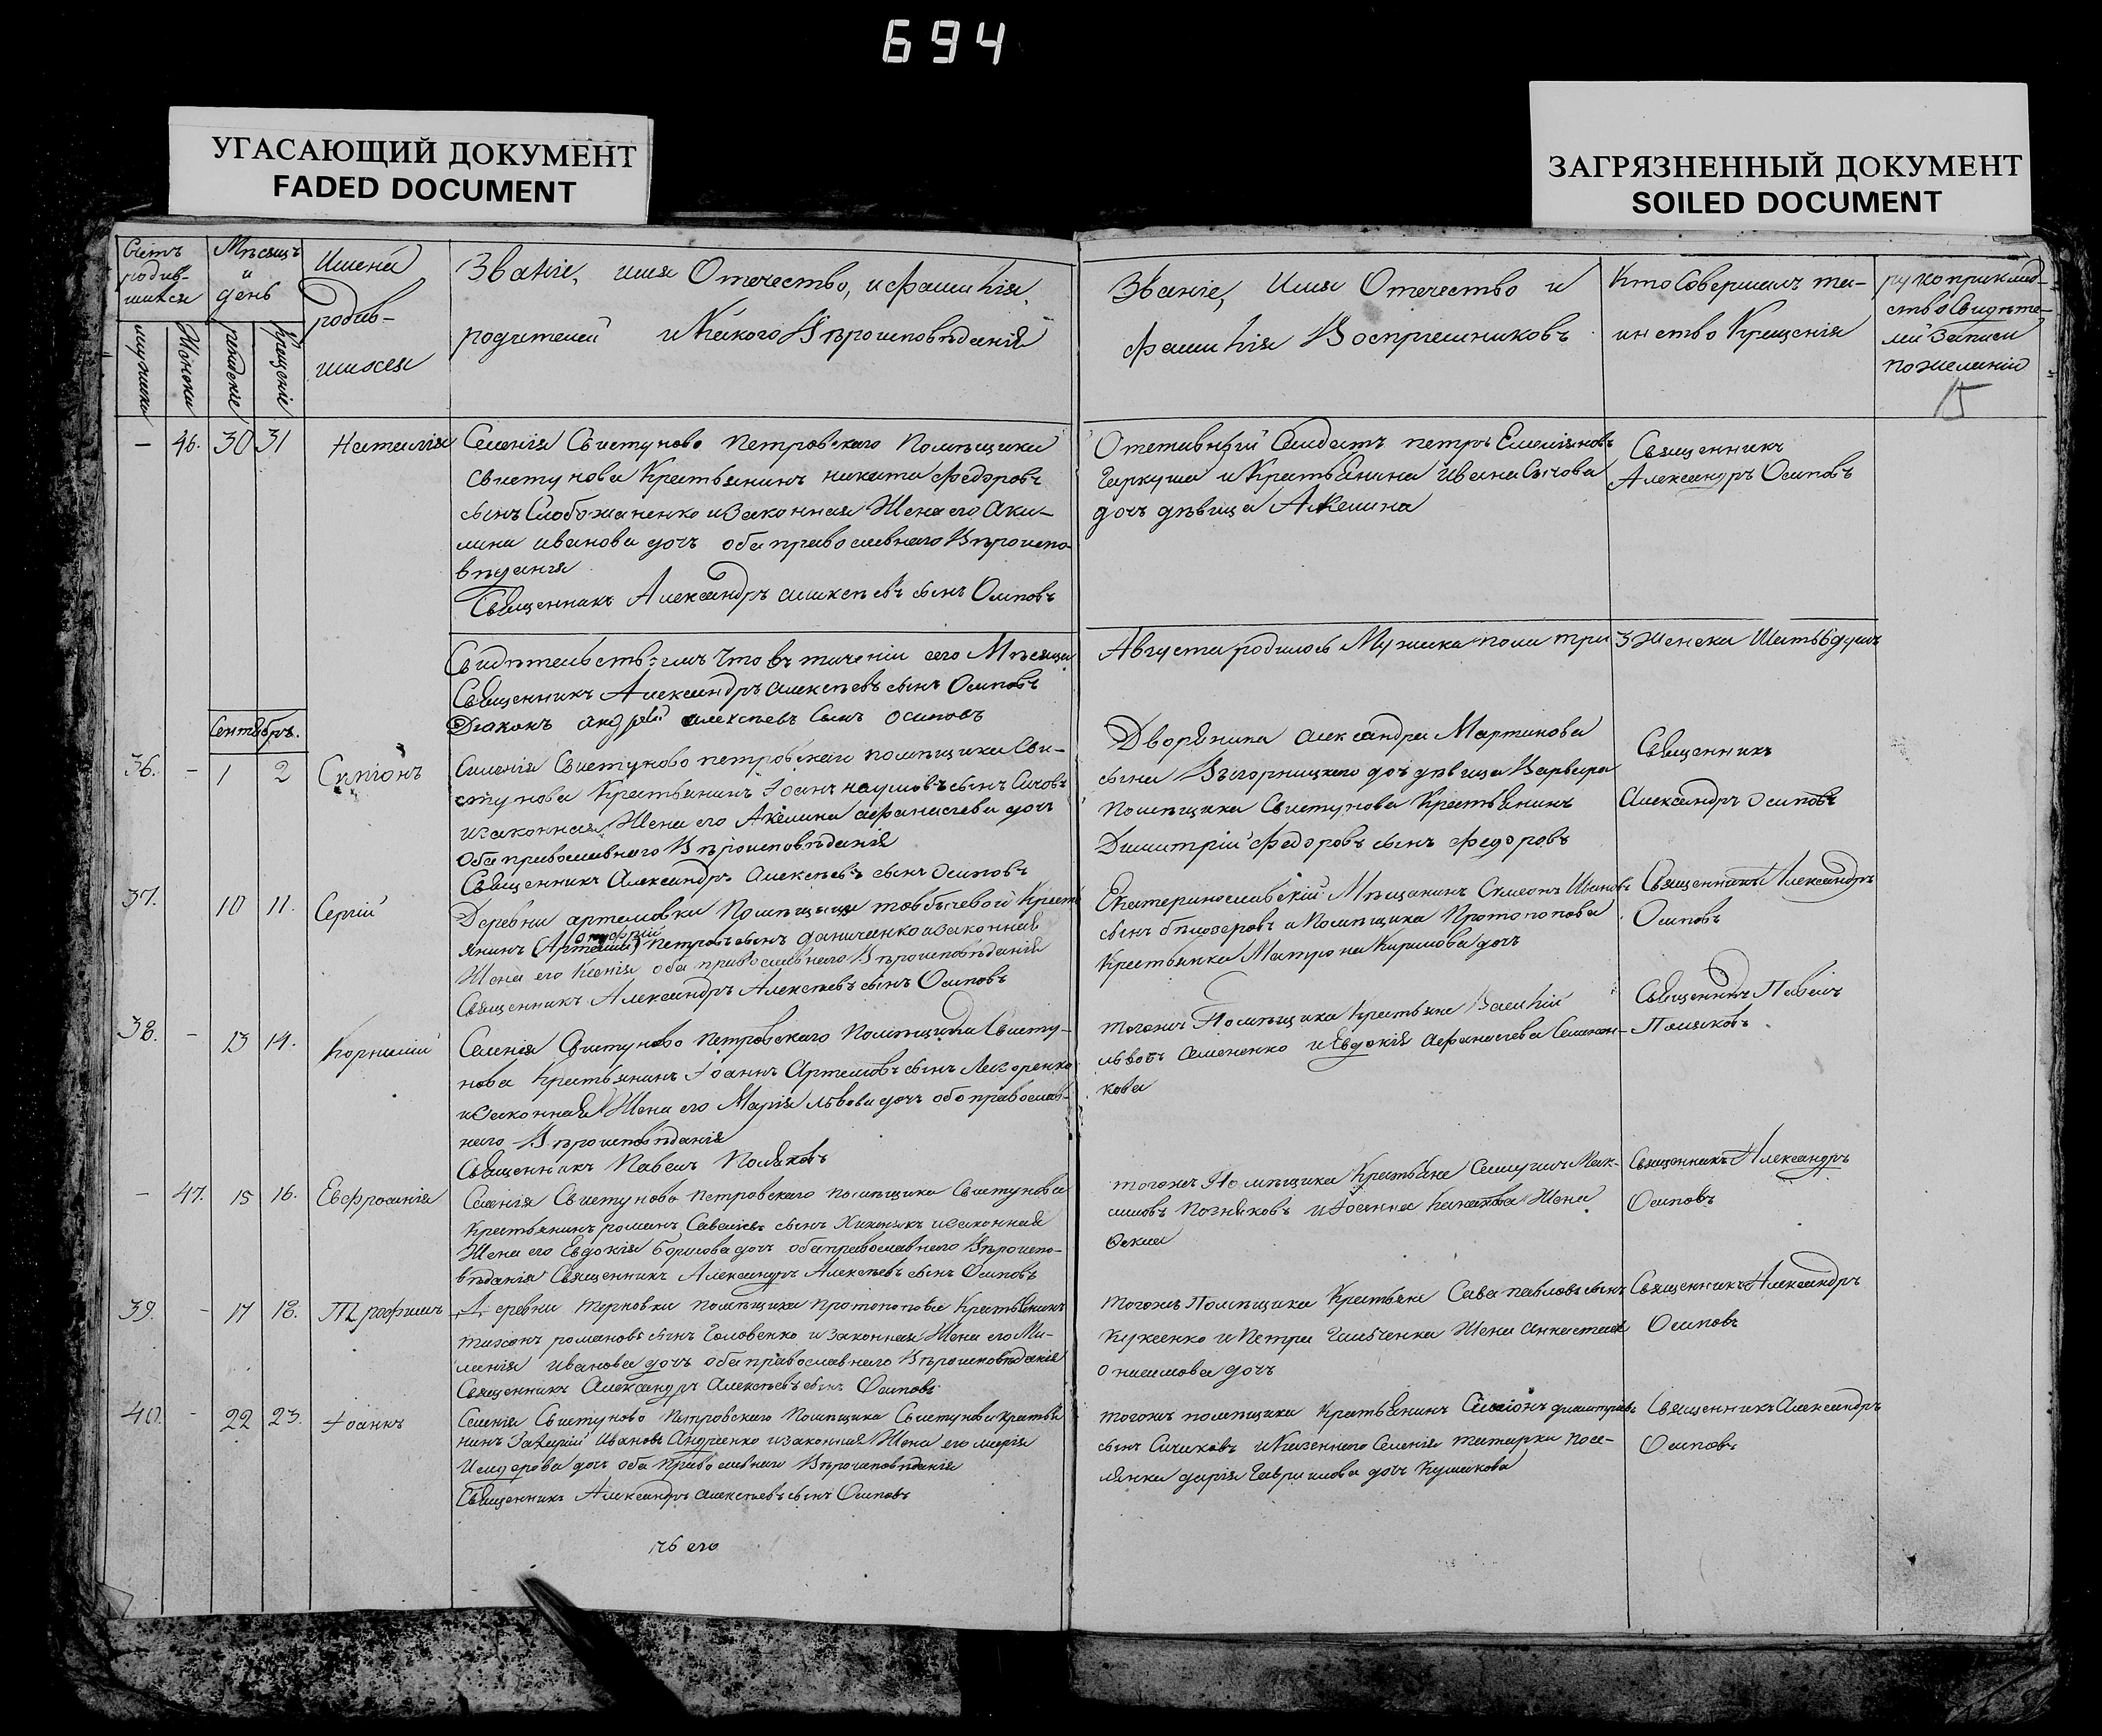 694
УГАСАЮЩИЙ ДОКУМЕНТ
FADED DOCUMENT
ЗАГРЯЗНЕННЫЙ ДОКУМЕНТ
SOILED DOCUMENT
Счетъ родив-шихся
Мѣсяцъ и день
мужеска
женска
рожденіе
крещеніе
Имена
родив-
шихся
Званіе, имя Отечество, и фамилія,
родителей и Какого Вѣроисповѣданія
Званіе, Имя Отечество и
фамилія Воспріемниковъ
Кто Совершалъ та-
инство Крещенія
рукоприклад-
ство Свидѣте-
лей Записи
по желанію
15
— 46. 30 31 Наталія
Селенія Свистуново Петровскаго Помѣщика
Свистунова Крестьянинъ никита Федоровъ
сынъ Слобожаненко и Законная Жена его Аки-
лина иванова дочь оба православнаго Вѣроиспо-
вѣданія
Священникъ Александръ алексѣевъ сынъ Осиповъ
Отставный Солдатъ петръ Емеліяновъ
Гаркуша и Крестьянина Ивана Сычова
дочь дѣвица Акелина
Священникъ
Александръ Осиповъ
Свидѣтельствуемъ Что въ теченіи сего Мѣсяца
Августа родилось Мужска пола три 3 Женска Шесть 6 душъ
Священникъ Александръ алексѣевъ сынъ Осиповъ
Діаконъ андрей алексѣевъ Сынъ Осиповъ
Сентябрь.
36. – 1 2 Симіонъ
Силенія Свистуново петровскаго помѣщика Сви-
стунова Крестьянинъ Іоанъ наумовъ сынъ Сичовъ
и законная Жена его Акелина афанасіева дочь
Оба православнаго Вѣроисповѣданія
Священникъ Александръ Алексѣевъ сынъ Осиповъ
Дворянина александра Мартинова
сына Вигорницкого дочь дѣвица Варвара
Помѣщика Свистунова Крестьянинъ
Димитрій Федоровъ сынъ Федоровъ
Священникъ
Александръ Осиповъ
37. 10 11. Сергій
Деревни артемовки Помѣщицы Товбычевой Кресть
онуфрій
янинъ (Артемій) Петровъ сынъ даниченко и законная
Жена его Ксенія оба православнаго Вѣроисповѣданія
Священникъ Александръ Алексѣевъ сынъ Осиповъ
Екатеринославскій Мѣщанинъ Симеонъ Ивановъ
сынъ бѣлозеровъ и Помѣщика Протопопова
Крестьянка Матрона Кирилова дочь
Священникъ Александръ
Осиповъ
38. – 13 14. Корнилій
Селенія Свистуново Петровскаго Помѣщика Свисту-
нова Крестьянинъ Іоаннъ Артемовъ сынъ
и Законная Жена его Марія львова дочь оба православ-
наго Вѣроисповѣданія
Священникъ Павелъ Поляковъ
Тогожъ Помѣщика Крестьяне Василій
львовъ Семененко и Евдокія афанасіева Семенен-
кова
Священникъ Павелъ
Поляковъ
– 47. 15 16. Евфросинія
Селенія Свистуново петровскаго помѣщика Свистунова
Крестьянинъ романъ Савеліевъ сынъ и законная
Жена его Евдокія борисова дочь оба православнаго Вѣроиспо-
вѣданія Священникъ Александръ Алексѣевъ сынъ Осиповъ
тогожъ Помѣщика Крестьяне Самуилъ Мак-
симовъ Позняковъ и Іоанна Жена
Священникъ Александръ
Осиповъ
39. – 17 18. Трофимъ
Деревни терновки помѣщика протопопова Крестьянинъ
тихонъ романовъ сынъ Головенко и законная Жена его Ми-
ланія иванова дочь оба православнаго Вѣроисповѣданія
Священникъ Александръ Алексѣевъ сынъ Осиповъ
тогожъ Помѣщика Крестьяне Сава павловъ сынъ
и Петра Жена Анастасія
онисимова дочь
Священникъ Александръ
Осиповъ
40. – 22 23. Іоаннъ
Селенія Свистуново Петровскаго Помѣщика Свистунова крестья
нинъ Захарій Ивановъ Андріенко и законная Жена его марія
Исидорова дочь оба Православнаго Вѣроисповѣданія
Священникъ Александръ алексѣевъ сынъ Осиповъ
тогожъ помѣщика Крестьянинъ Симіонъ димитріевъ
сынъ Сичиковъ и Казеннаго Селенія татарки посе-
лянка дарія Гаврилова дочь Кушакова
Священникъ Александръ
Осиповъ